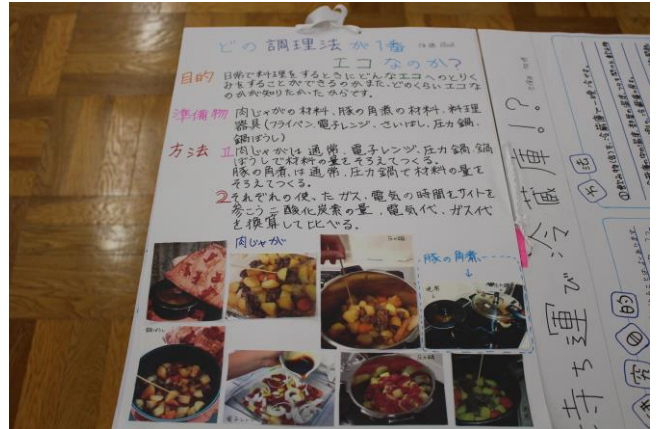 どの調理法が1番
エコなのか?
目的 日常で料理をするときにどんなエコへのとりく
みをすることができるのか、また、どのくらいエコな
のかが知りたかったからです。
準備物 肉じゃがの材料、豚の角煮の材料、料理
器具(フライパン、電子レンジ、さいばし、圧力鍋、
鍋ぼうし)
方法 1 肉じゃがは通常、電子レンジ、圧力鍋、鍋
ぼうしで材料の量をそろえてつくる。
豚の角煮は通常、圧力鍋で材料の量を
そろえてつくる。
2 それぞれの使ったガス、電気の時間をサイトを
参こうに二酸化炭素の量、電気代、ガス代
を換算して比べる。
肉じゃが
豚の角煮
↓
電子レンジ
持ち運び冷蔵庫!?
方法